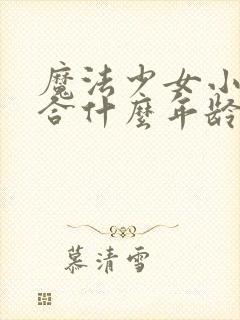 魔法少女小
合什麼年齡
慕清雪